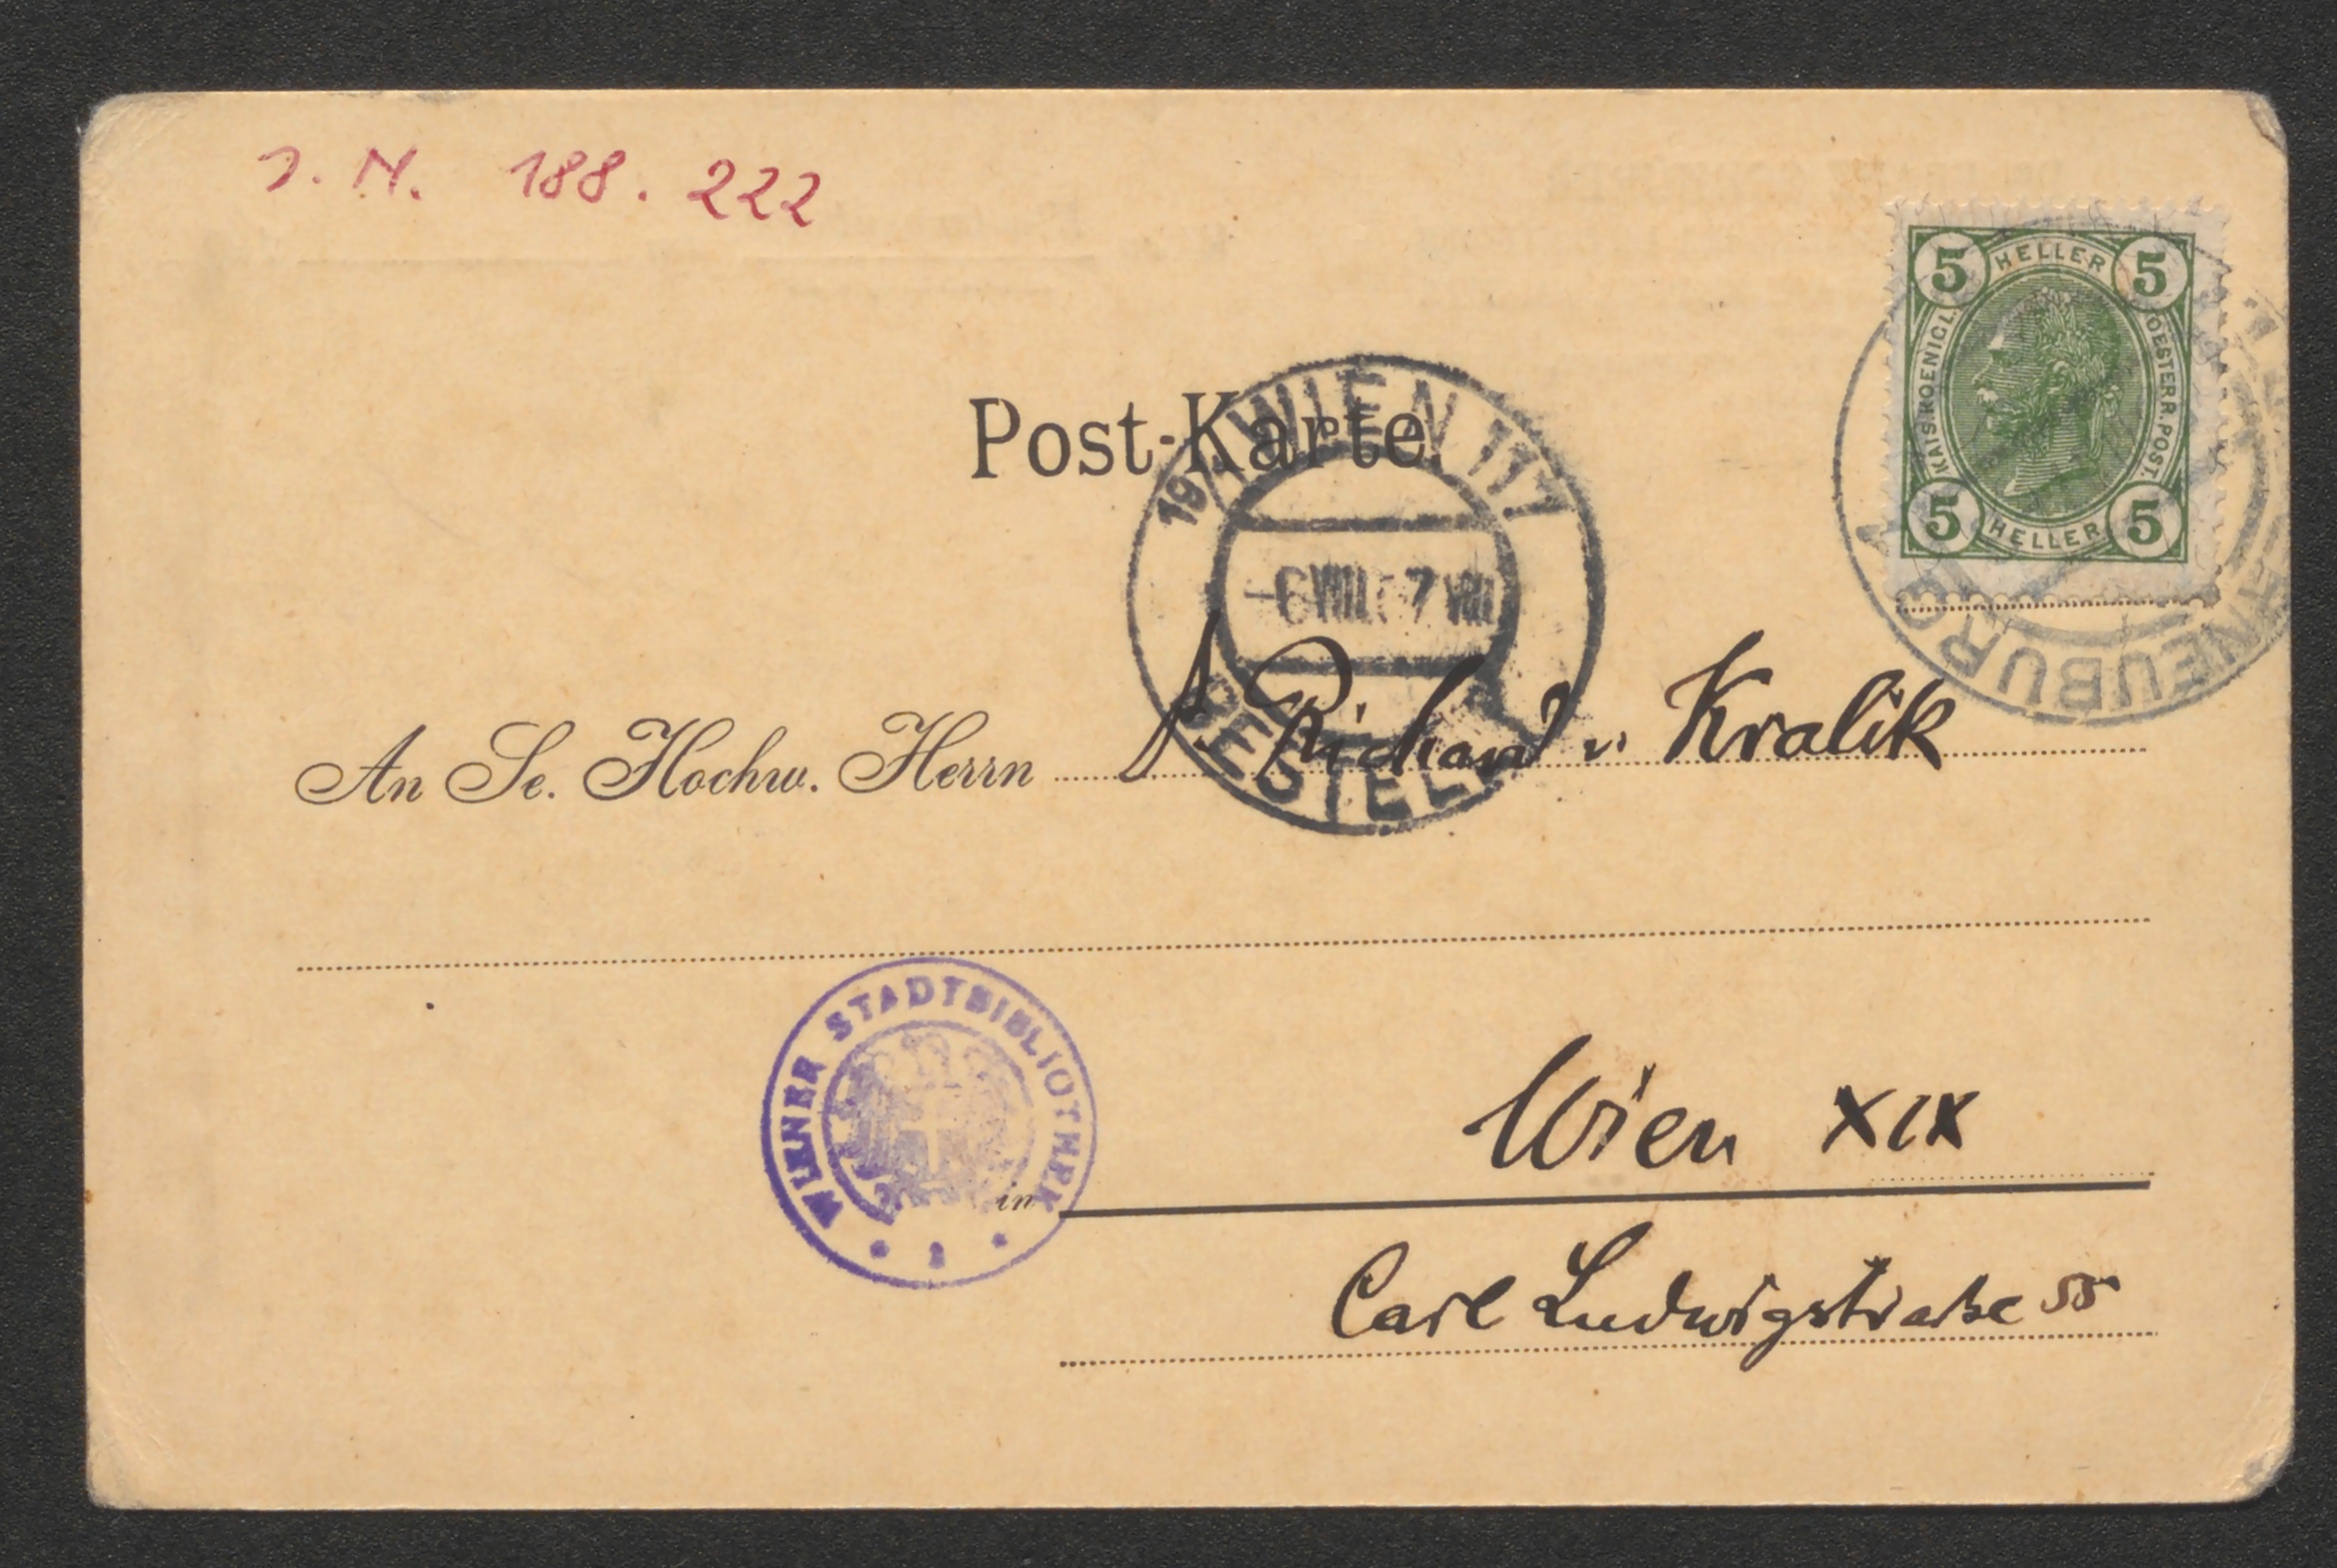 J. N. 188.222
5 HELLER 5
KAIS. KOENIGL. OESTERR. POST.
5 HELLER 5
Post-Karte.
WIEN 117
-6 VIII 7 VIII
BESTELLT
NEUBURG
An Se. Hochw. Herrn Richard v. Kralik
WIENER STADTBIBLIOTHEK
Wien XIX
in
Carl Ludwigstraße 55